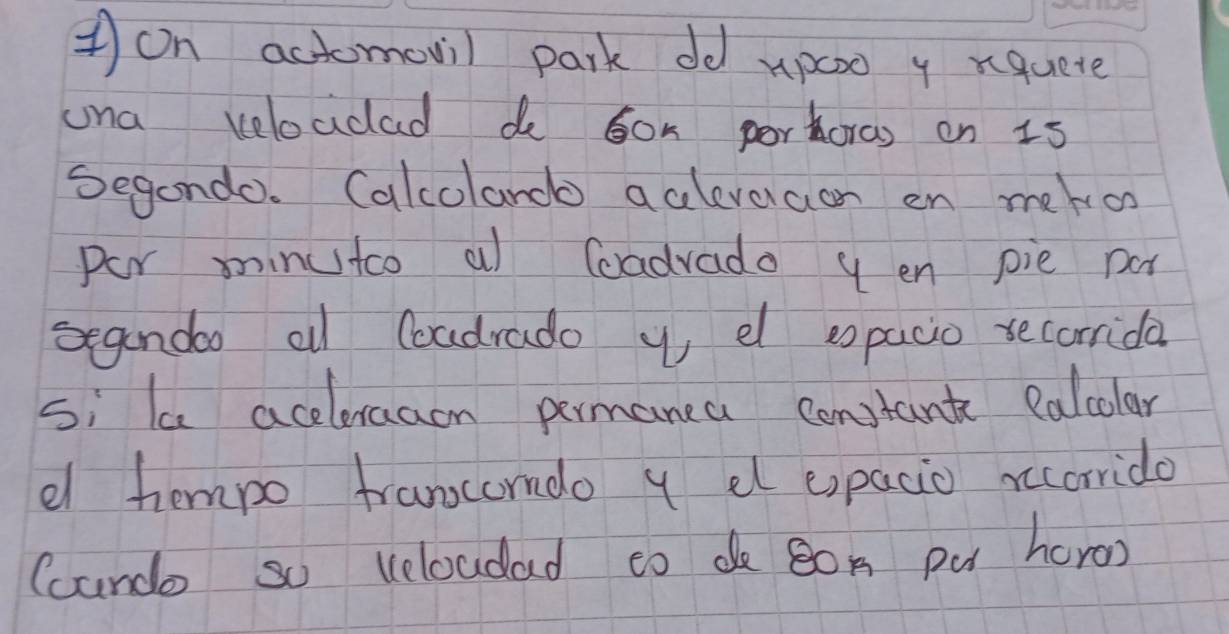 1) Un actomovil park del repoo y requere
una velocidad de 60k por horas en 15
Segundo. Calculando aceleracion en metros
por minutoo al Cuadrado y en pie por
segundoo al Cuadrado y, el espacio recorrida
Si la aceleracion permanea Constante Calcular
el tiempo transcorrido y el espacio recorrido
Cuando su velocidad es de 80k por horas